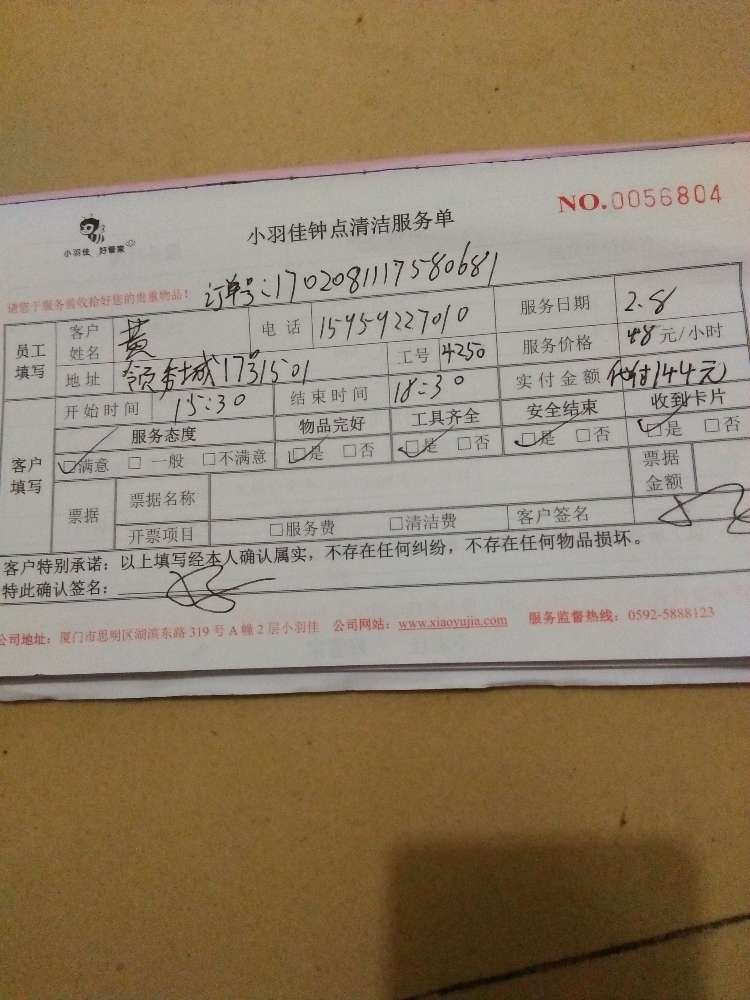 NO.0056804
小羽佳 好管家
小羽佳钟点清洁服务单
请您于服务前收拾好您的贵重物品！ 订单号:17020811117580681
员工填写 客户姓名 黄 电话 15959227010 服务日期 2.8
地址 领秀城17#1501 工号 4250 服务价格 48元/小时
开始时间 15:30 结束时间 18:30 实付金额 代付144元
客户填写 服务态度 物品完好 工具齐全 安全结束 收到卡片
☑满意 □一般 □不满意 ☑是 □否 ☑是 □否 ☑是 □否 ☑是 □否
票据 票据名称 票据金额
开票项目 □服务费 □清洁费 客户签名
客户特别承诺：以上填写经本人确认属实，不存在任何纠纷，不存在任何物品损坏。
特此确认签名：
公司地址：厦门市思明区湖滨东路319号A幢2层小羽佳 公司网站：www.xiaoyujia.com 服务监督热线：0592-5888123